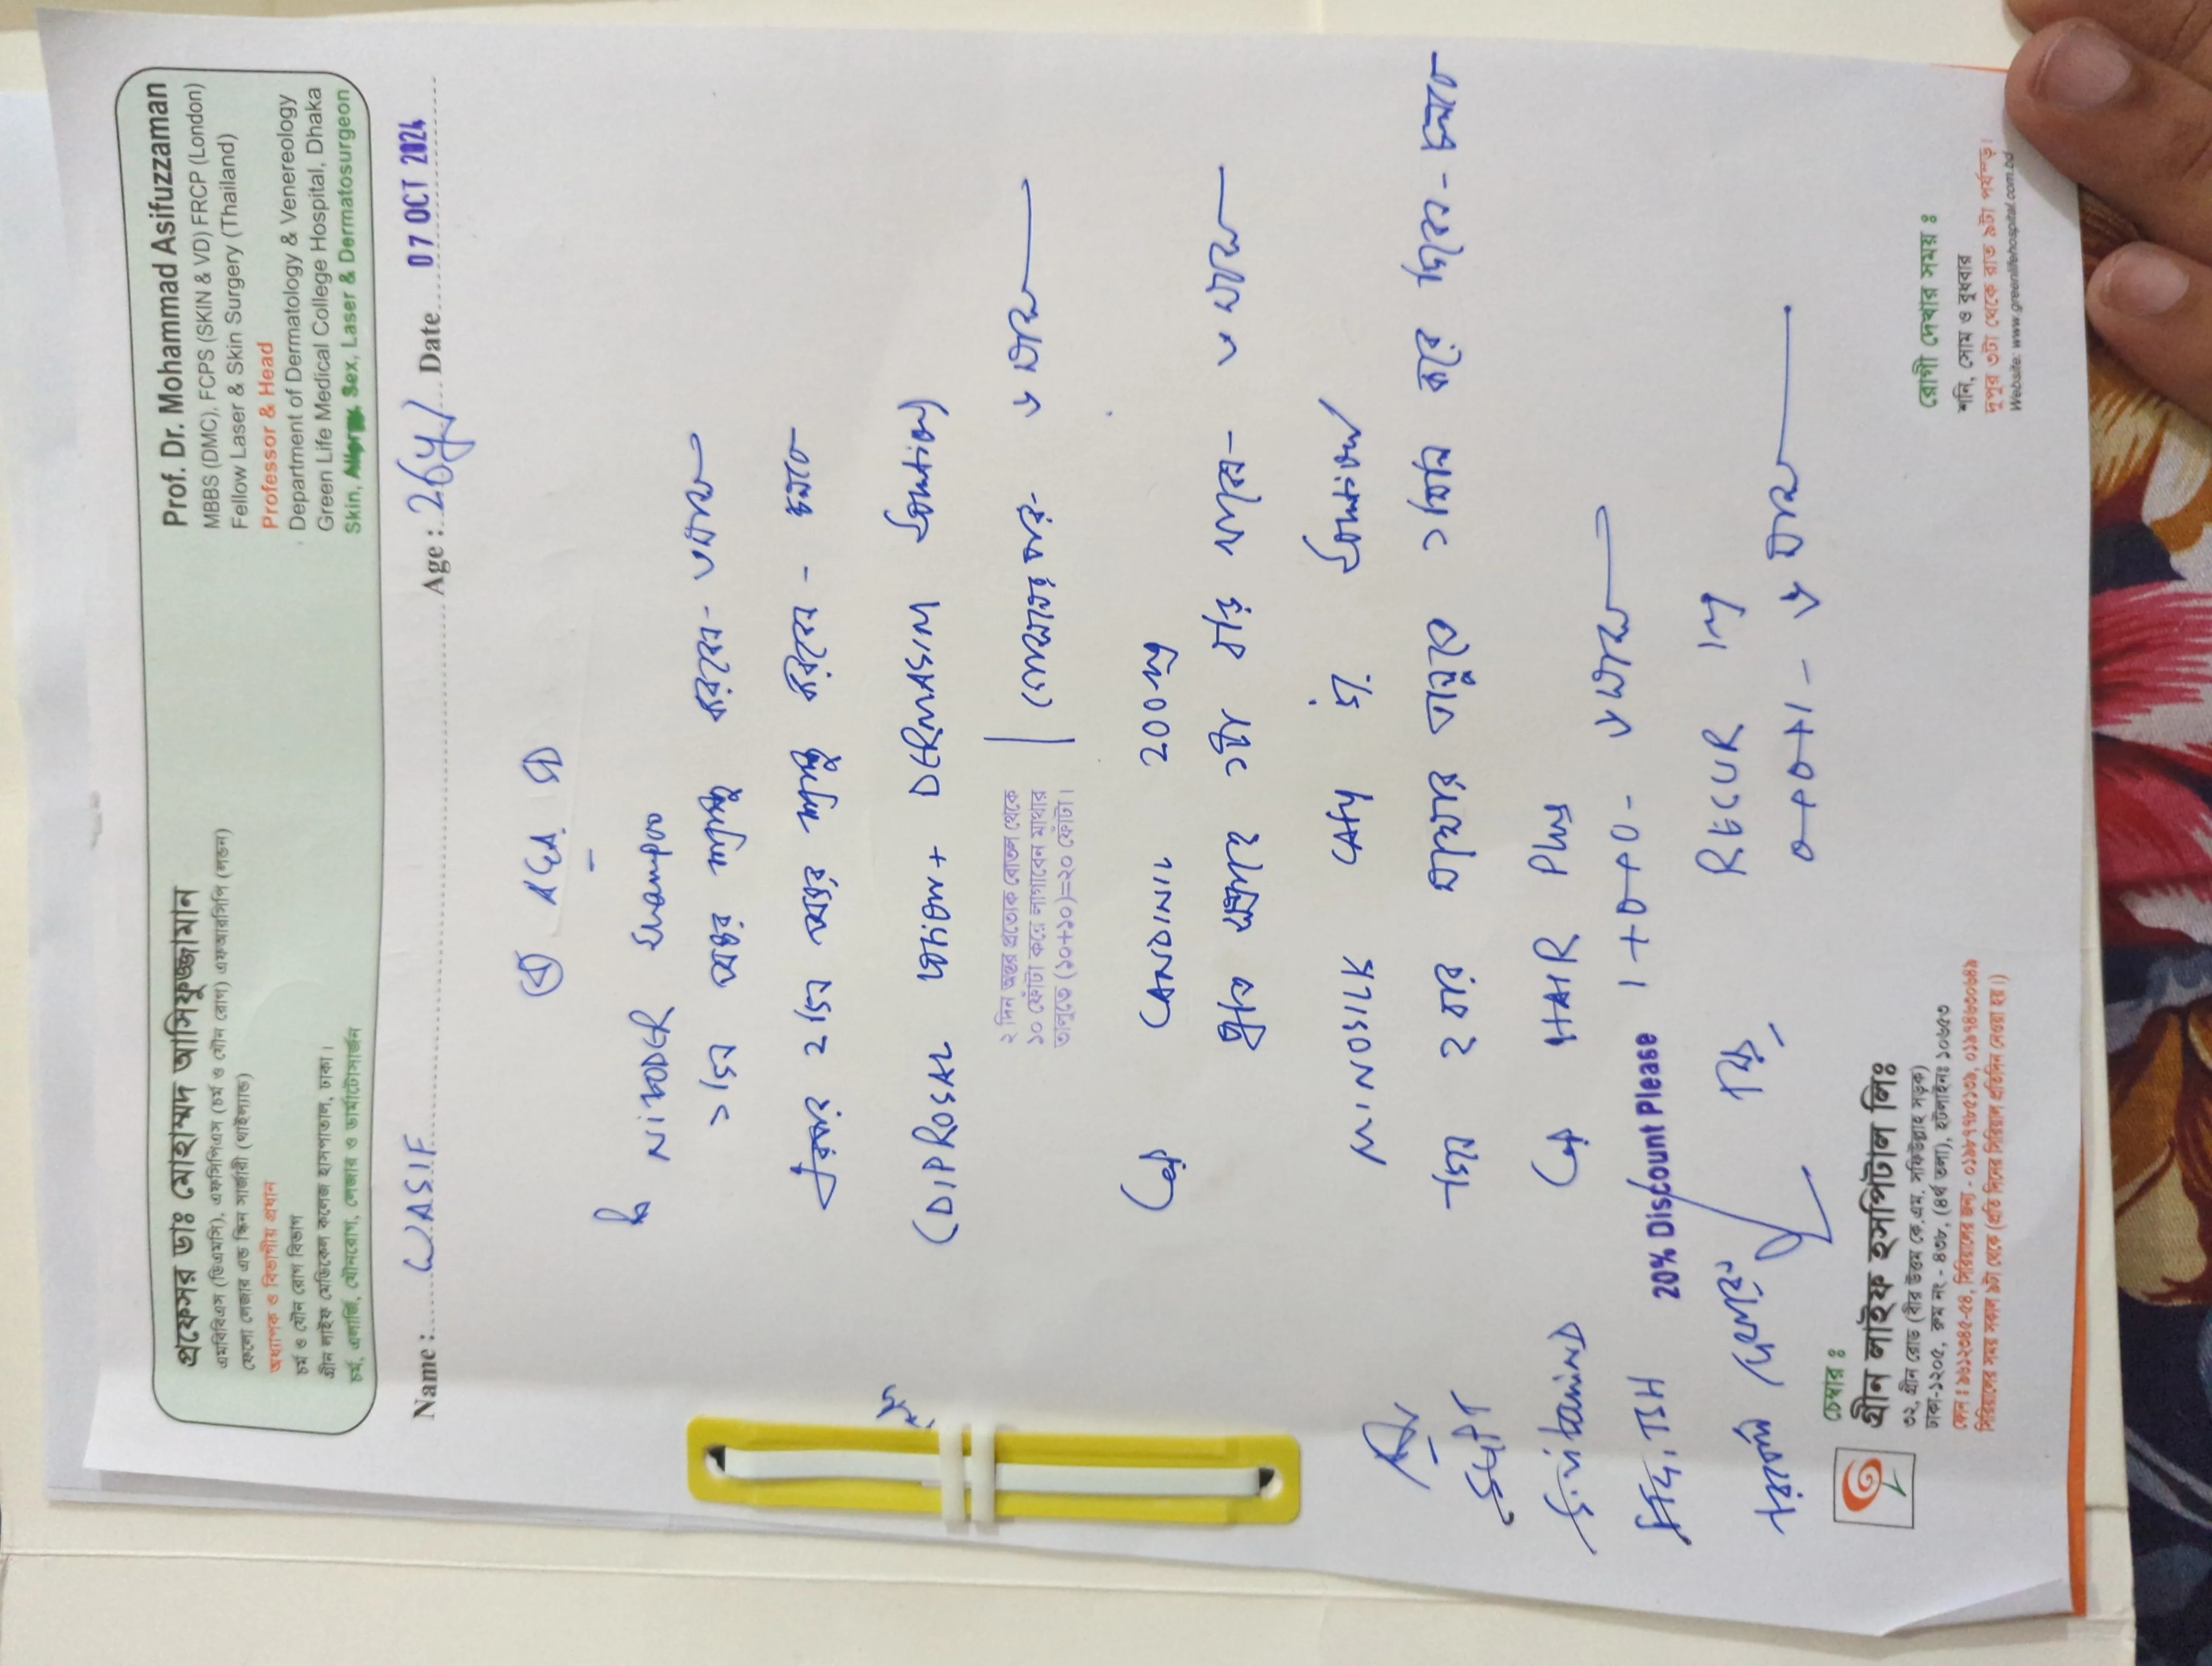 প্রফেসর ডাঃ মোহাম্মদ আসিফুজ্জামান
এমবিবিএস (ডিএমসি), এফসিপিএস (চর্ম ও যৌন রোগ) এফআরসিপি (লন্ডন)
ফেলো লেজার এন্ড স্কিন সার্জারী (থাইল্যান্ড)
অধ্যাপক ও বিভাগীয় প্রধান
চর্ম ও যৌন রোগ বিভাগ
গ্রীন লাইফ মেডিকেল কলেজ হাসপাতাল, ঢাকা।
চর্ম, এলার্জি, যৌনরোগ, লেজার ও ডার্মাটোসার্জন
Prof. Dr. Mohammad Asifuzzaman
MBBS (DMC), FCPS (SKIN & VD) FRCP (London)
Fellow Laser & Skin Surgery (Thailand)
Professor & Head
Department of Dermatology & Venereology
Green Life Medical College Hospital, Dhaka
Skin, Allergy, Sex, Laser & Dermatosurgeon
Name : WASIF Age : 26y Date 07 OCT 2024
AGA
NIZODER Shampoo
১ দিন অন্তর শ্যাম্পু করবেন-
২ দিন অন্তর শ্যাম্পু করবেন - চলবে
(DIPROSAL Lotion + DERMASIM Solution)
২ দিন অন্তর প্রত্যেক বোতল থেকে
১০ ফোঁটা করে লাগাবেন মাথার
তালুতে (১০+১০)=২০ ফোঁটা।
Cap CANDINIL 200mg
প্রতি সপ্তাহে ১টা
MINOSILK 5% Solution
দিনে ২ বার মাথার তালুতে
Cap HAIR Plus
1+0+0 -
RECUR 1mg
0+0+1 -
Adv
SGPT
S. Vitamin D
TSH
20% Discount Please
চেম্বার ঃ
গ্রীন লাইফ হসপিটাল লিঃ
৩২, গ্রীন রোড (বীর উত্তম কে.এম. সফিউল্লাহ সড়ক)
ঢাকা-১২০৫, রুম নং - ৪৩৮, (৪র্থ তলা), হটলাইনঃ ১০৬৫৩
সিরিয়ালের সময় সকাল ৯টা থেকে (প্রতি দিনের সিরিয়াল প্রতিদিন দেওয়া হয়।)
রোগী দেখার সময় ঃ
শনি, সোম ও বুধবার
দুপুর ৩টা থেকে রাত ৯টা পর্যন্ত।
Website: www.greenlifehospital.com.bd